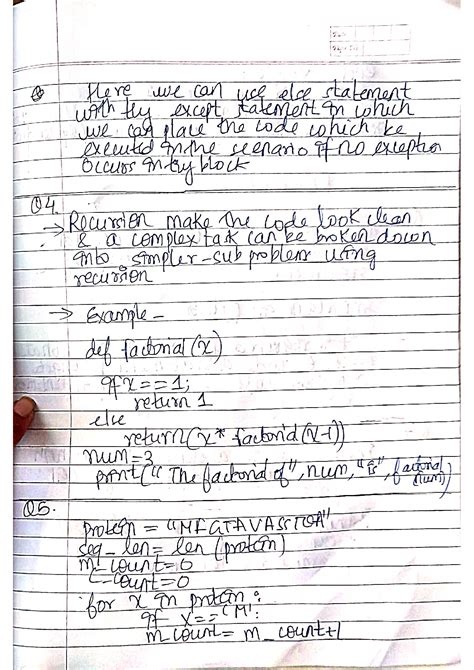 Here we can use else statement
with try except statement in which
we can place the code which be
executed in the scenario if no exception
occurs in try block
Q4.
→ Recursion make the code look clean
& a complex task can be broken down
into simpler-sub problem using
recursion
→ Example -
def factorial (x)
if x == 1;
return 1
else
return (x * factorial (x-1))
num = 3
print (" The factorial of", num, "is", factorial
(num))
Q5.
protein =
seq_len = len (protein)
m_count = 0
count = 0
for x in protein :
if x == "M':
m_count = m_count+1